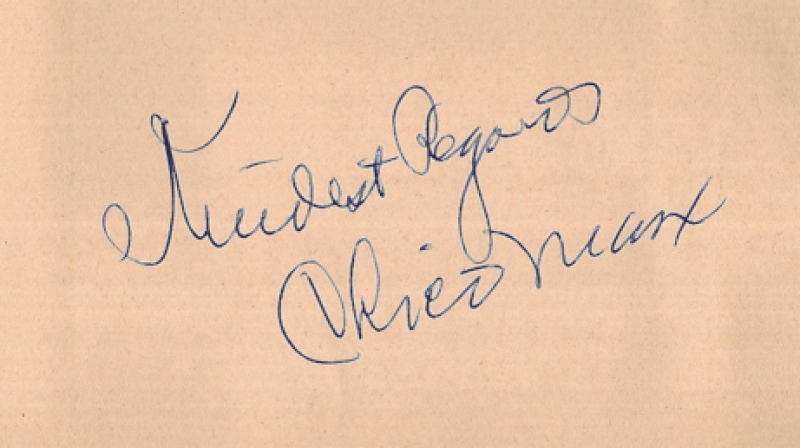 Kindest Regards
Chico Marx